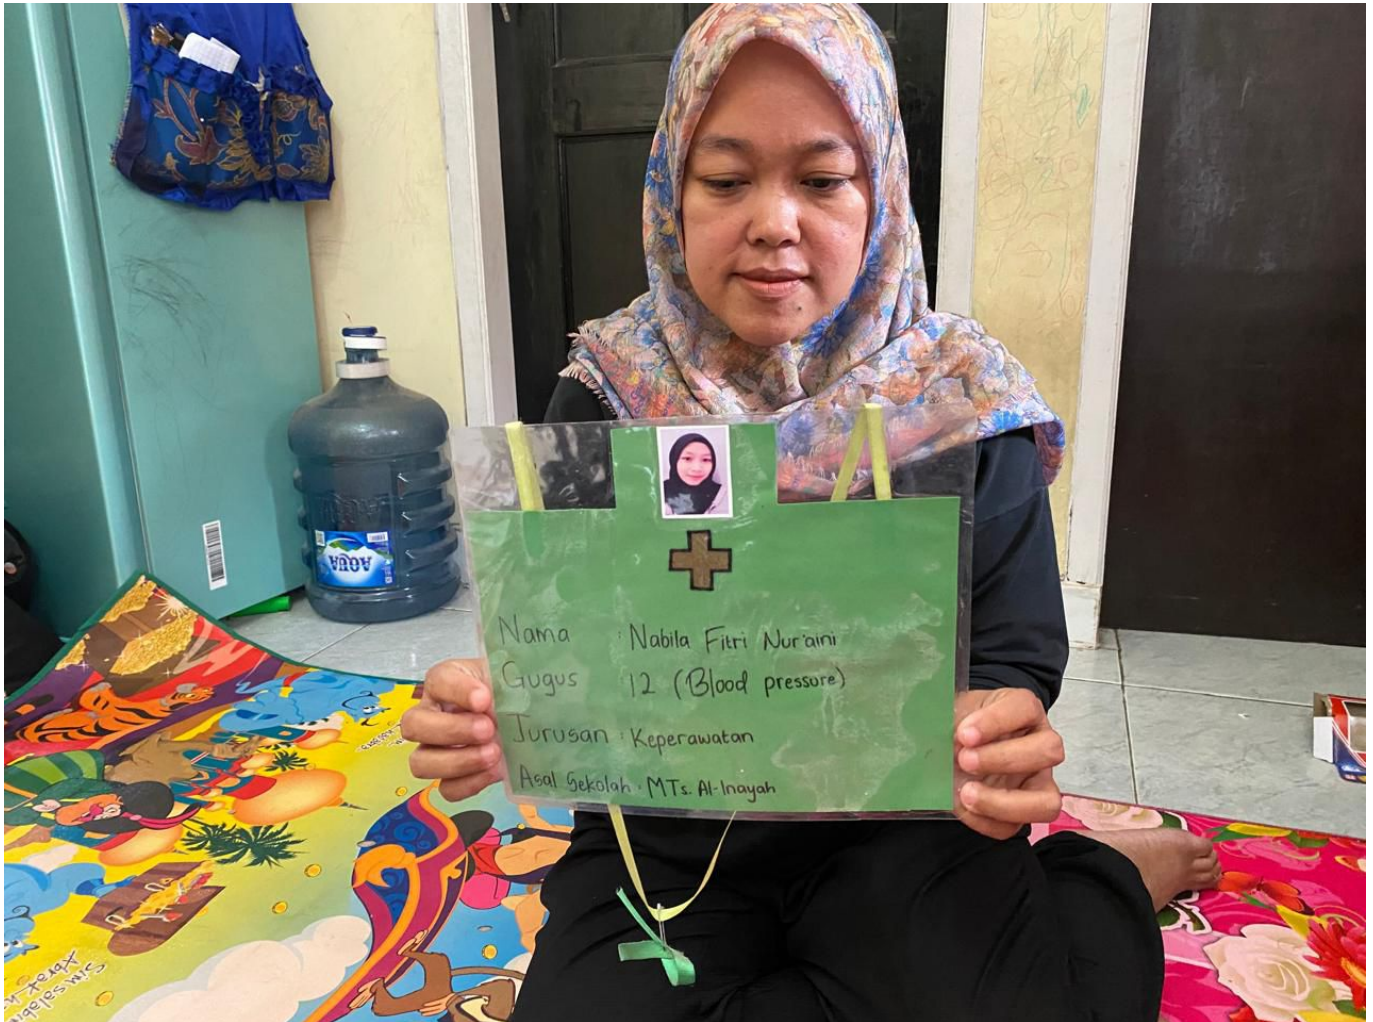 AQUA
Nama : Nabila Fitri Nur'aini
Gugus 12 (Blood pressure)
Jurusan : Keperawatan
Asal Sekolah : MTs. Al-Inayah
Simsalabim